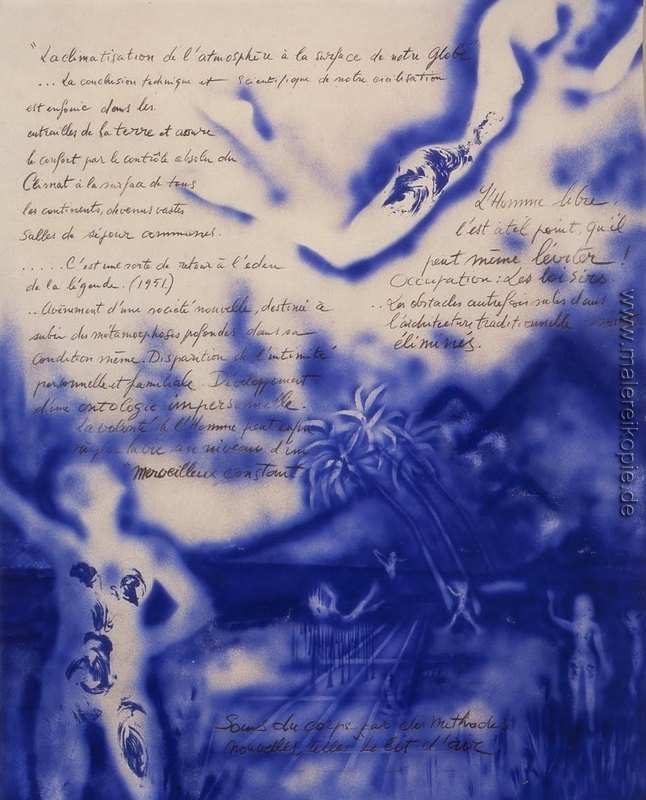 "La climatisation de l'atmosphère à la surface de notre globe
... La conclusion technique et scientifique de notre civilisation
est enfouie dans les
entrailles de la terre et assure
le confort par le contrôle absolu du
Climat à la surface de tous
les continents, devenus vastes
salles de séjour communes.
..... C'est une sorte de retour à l'eden
de la légende. (1951)
.. Avènement d'une société nouvelle, destinée à
subir des métamorphoses profondes dans sa
condition même. Disparition de l'intimité
personnelle et familiale. Développement
d'une ontologie impersonnelle.
la volonté de l'Homme peut enfin
la vie au niveau d'un
"merveilleux constant
L'Homme libre,
l'est à tel point, qu'il
peut même léviter !
Occupation : Les loisirs
.. Les obstacles autrefois subis dans
l'architecture traditionnelle sont
éliminés.
Soins du corps par des méthodes
nouvelles, telles le lit d'air
www.malereikopie.de